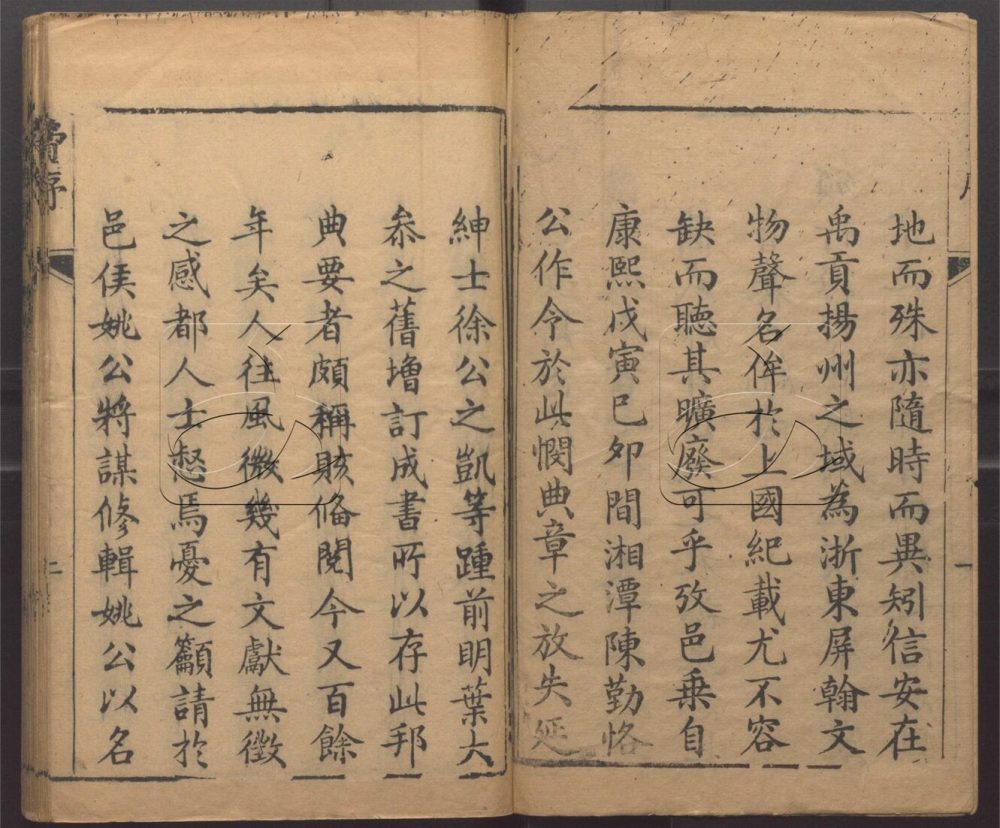 地而殊亦隨時而異矧信安在
禹貢揚州之域為浙東屏翰文
物聲名侔於上國紀載尤不容
缺而聽其曠廢可乎攷邑乗自
康熙戊寅巳卯間湘潭陳勤恪
公作令於此憫典章之放失延
紳士徐公之凱等踵前明葉大
叅之舊增訂成書所以存此邦
典要者頗稱賅俻閱今又百餘
年矣人往風微幾有文獻無徵
之感都人士惄焉憂之籲請於
邑侯姚公將謀修輯姚公以名
序
二